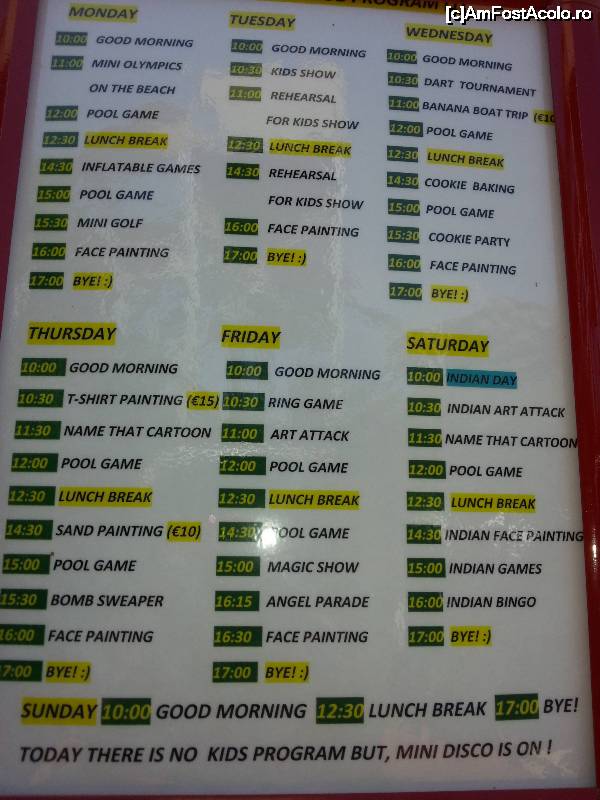 [c]AmFostAcolo.ro
PROGRAM
MONDAY
10:00 GOOD MORNING
11:00 MINI OLYMPICS
ON THE BEACH
12:00 POOL GAME
12:30 LUNCH BREAK
14:30 INFLATABLE GAMES
15:00 POOL GAME
15:30 MINI GOLF
16:00 FACE PAINTING
17:00 BYE! :)
TUESDAY
10:00 GOOD MORNING
10:30 KIDS SHOW
11:00 REHEARSAL
FOR KIDS SHOW
12:30 LUNCH BREAK
14:30 REHEARSAL
FOR KIDS SHOW
16:00 FACE PAINTING
17:00 BYE! :)
WEDNESDAY
10:00 GOOD MORNING
10:30 DART TOURNAMENT
11:00 BANANA BOAT TRIP
12:00 POOL GAME
12:30 LUNCH BREAK
14:30 COOKIE BAKING
15:00 POOL GAME
15:30 COOKIE PARTY
16:00 FACE PAINTING
17:00 BYE! :)
THURSDAY
10:00 GOOD MORNING
10:30 T-SHIRT PAINTING (€15)
11:30 NAME THAT CARTOON
12:00 POOL GAME
12:30 LUNCH BREAK
14:30 SAND PAINTING (€10)
15:00 POOL GAME
15:30 BOMB SWEAPER
16:00 FACE PAINTING
17:00 BYE! :)
FRIDAY
10:00 GOOD MORNING
10:30 RING GAME
11:00 ART ATTACK
12:00 POOL GAME
12:30 LUNCH BREAK
14:30 POOL GAME
15:00 MAGIC SHOW
16:15 ANGEL PARADE
16:30 FACE PAINTING
17:00 BYE! :)
SATURDAY
10:00 INDIAN DAY
10:30 INDIAN ART ATTACK
11:30 NAME THAT CARTOON
12:00 POOL GAME
12:30 LUNCH BREAK
14:30 INDIAN FACE PAINTING
15:00 INDIAN GAMES
16:00 INDIAN BINGO
17:00 BYE! :)
SUNDAY 10:00 GOOD MORNING 12:30 LUNCH BREAK 17:00 BYE!
TODAY THERE IS NO KIDS PROGRAM BUT, MINI DISCO IS ON !